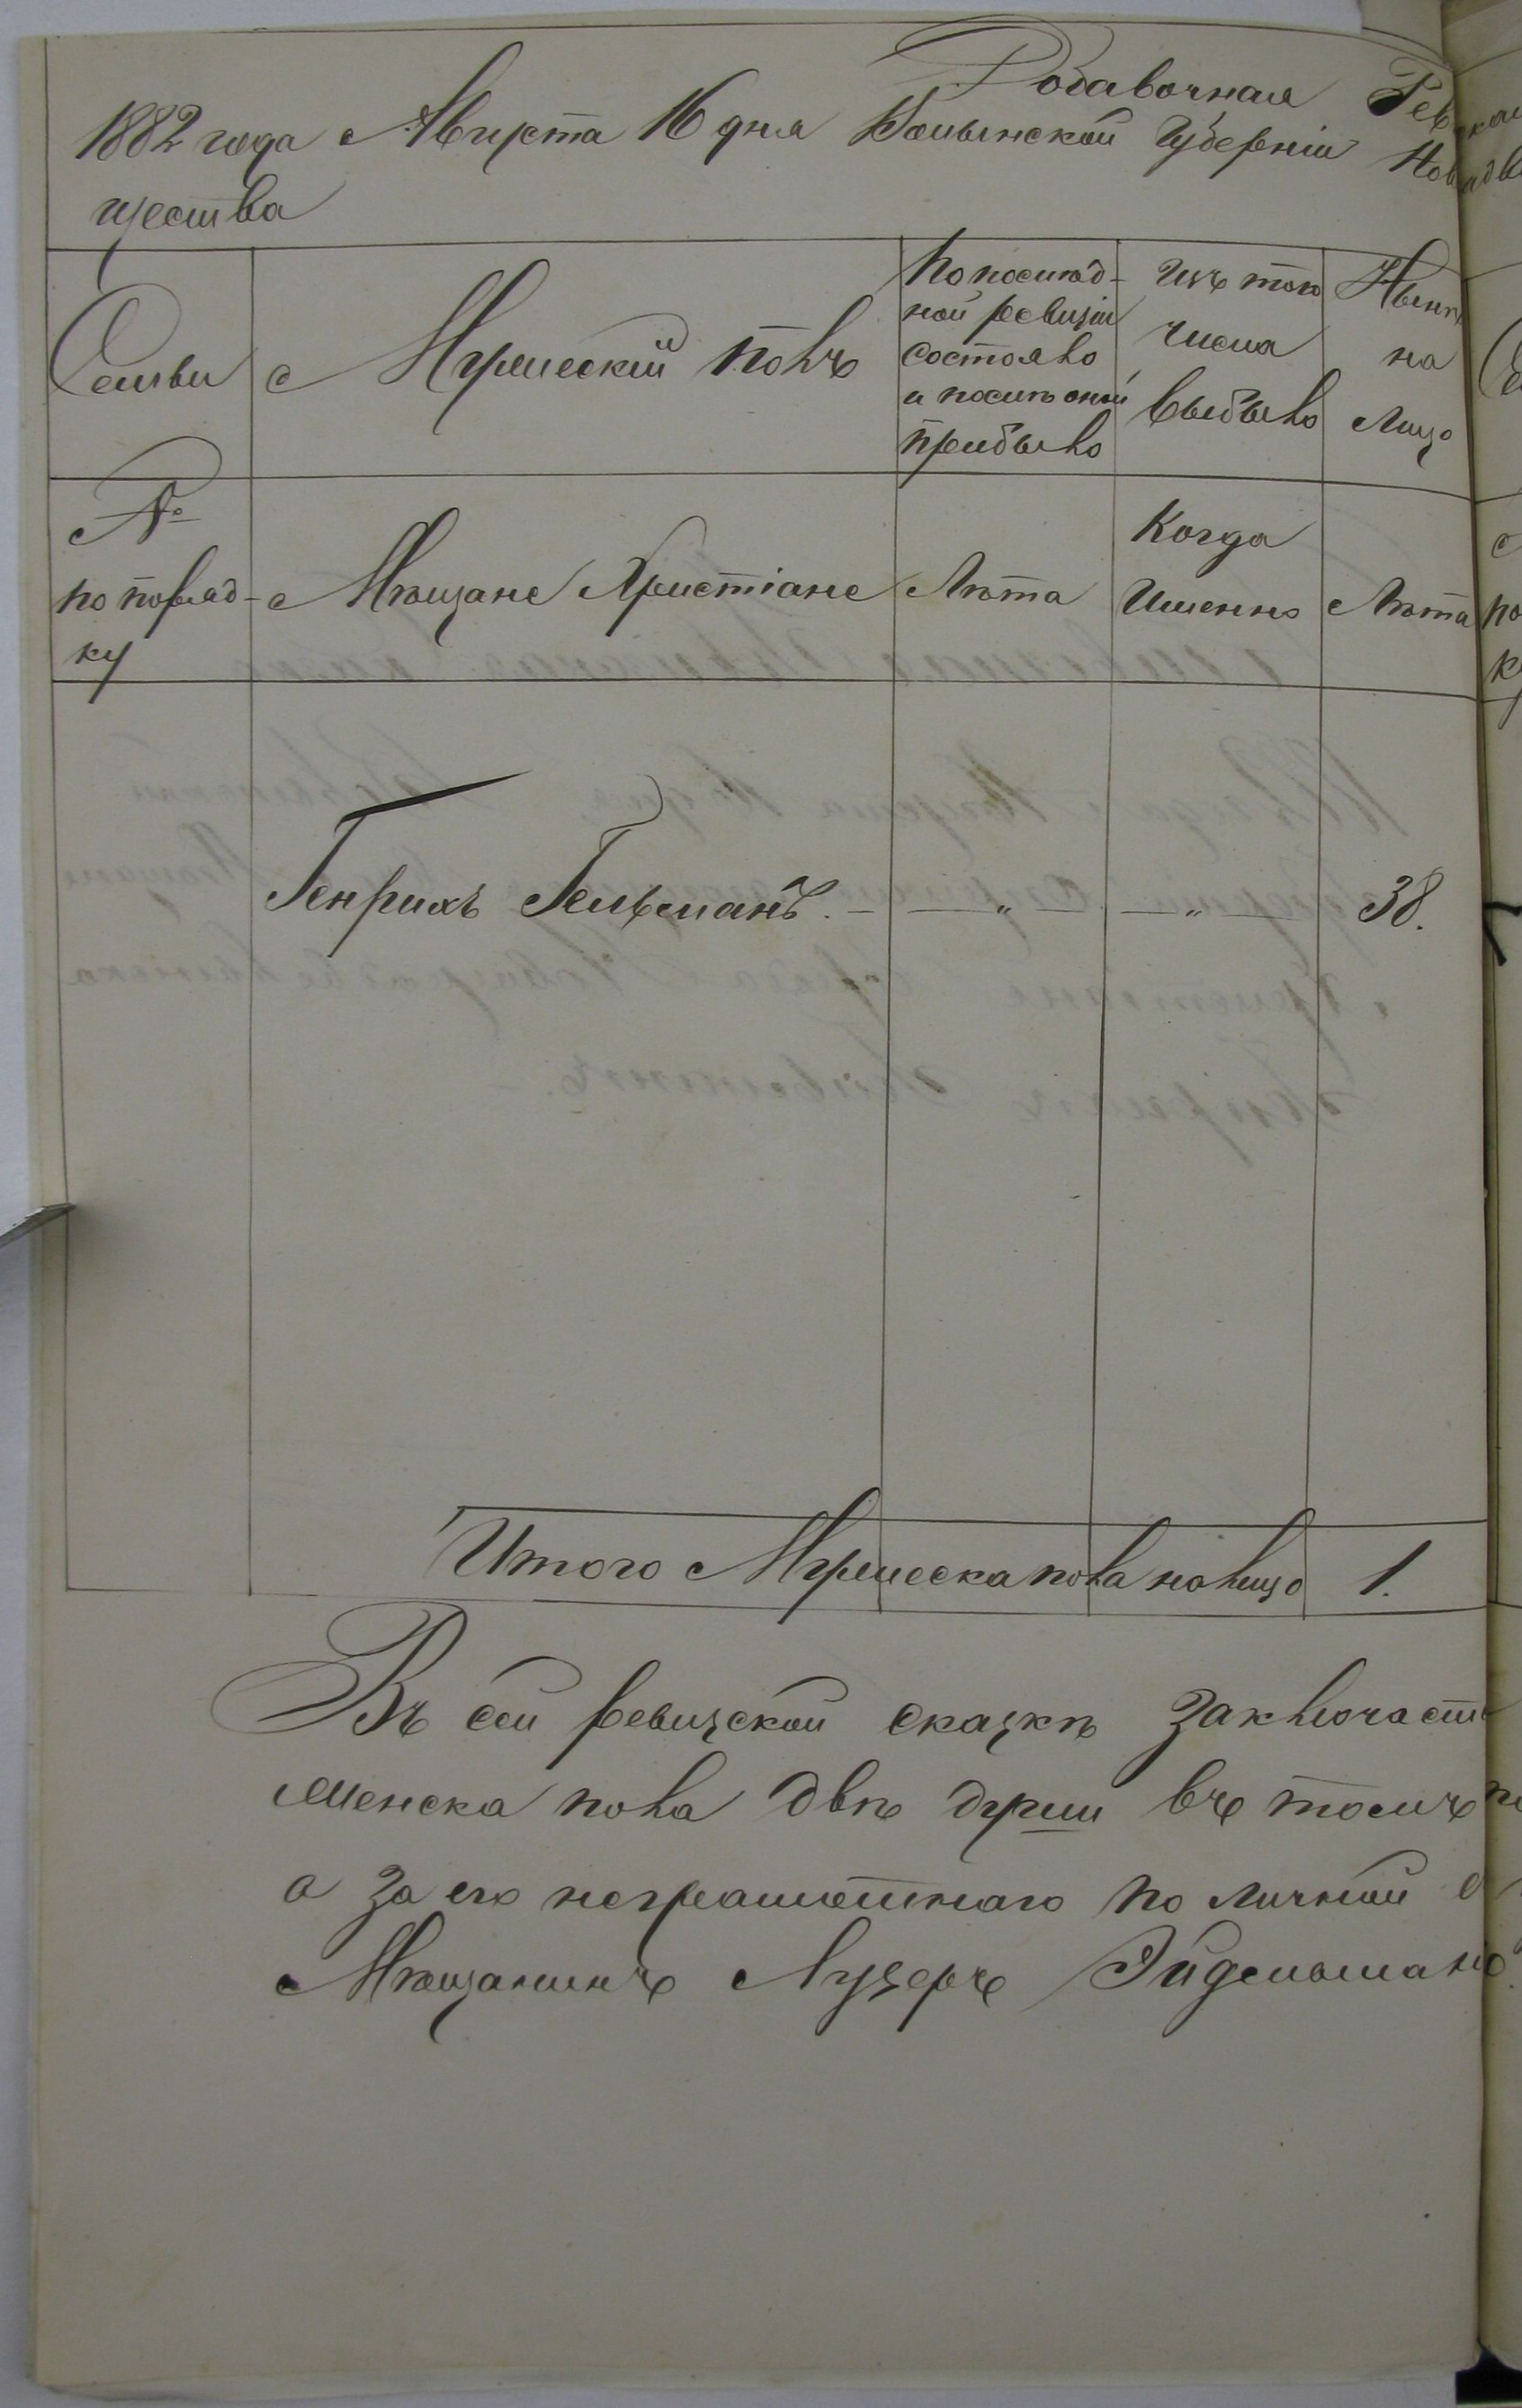 Добавочная Рев
1882 года Августа 16 дня Волынской Губерніи Нов
щества
Семьи
Мужескій полъ
По послѣд-
ной ревизіи
состояло
и послѣ оной
прибыло
Изъ того
числа
выбыло
Нынѣ
на
лицо
№
по поряд-
ку
Мѣщане Христіане
Лѣта
Когда
Именно
Лѣта
Генрихъ Гельманъ. — — „ — — „ — 38.
Итого Мужеска пола на лицо 1.
Въ сей ревизской сказкѣ заключаетъ
женска пола двѣ души въ томъ
а за его неграмотнаго по личной
Мѣщанинъ Лузеръ Эйдельман